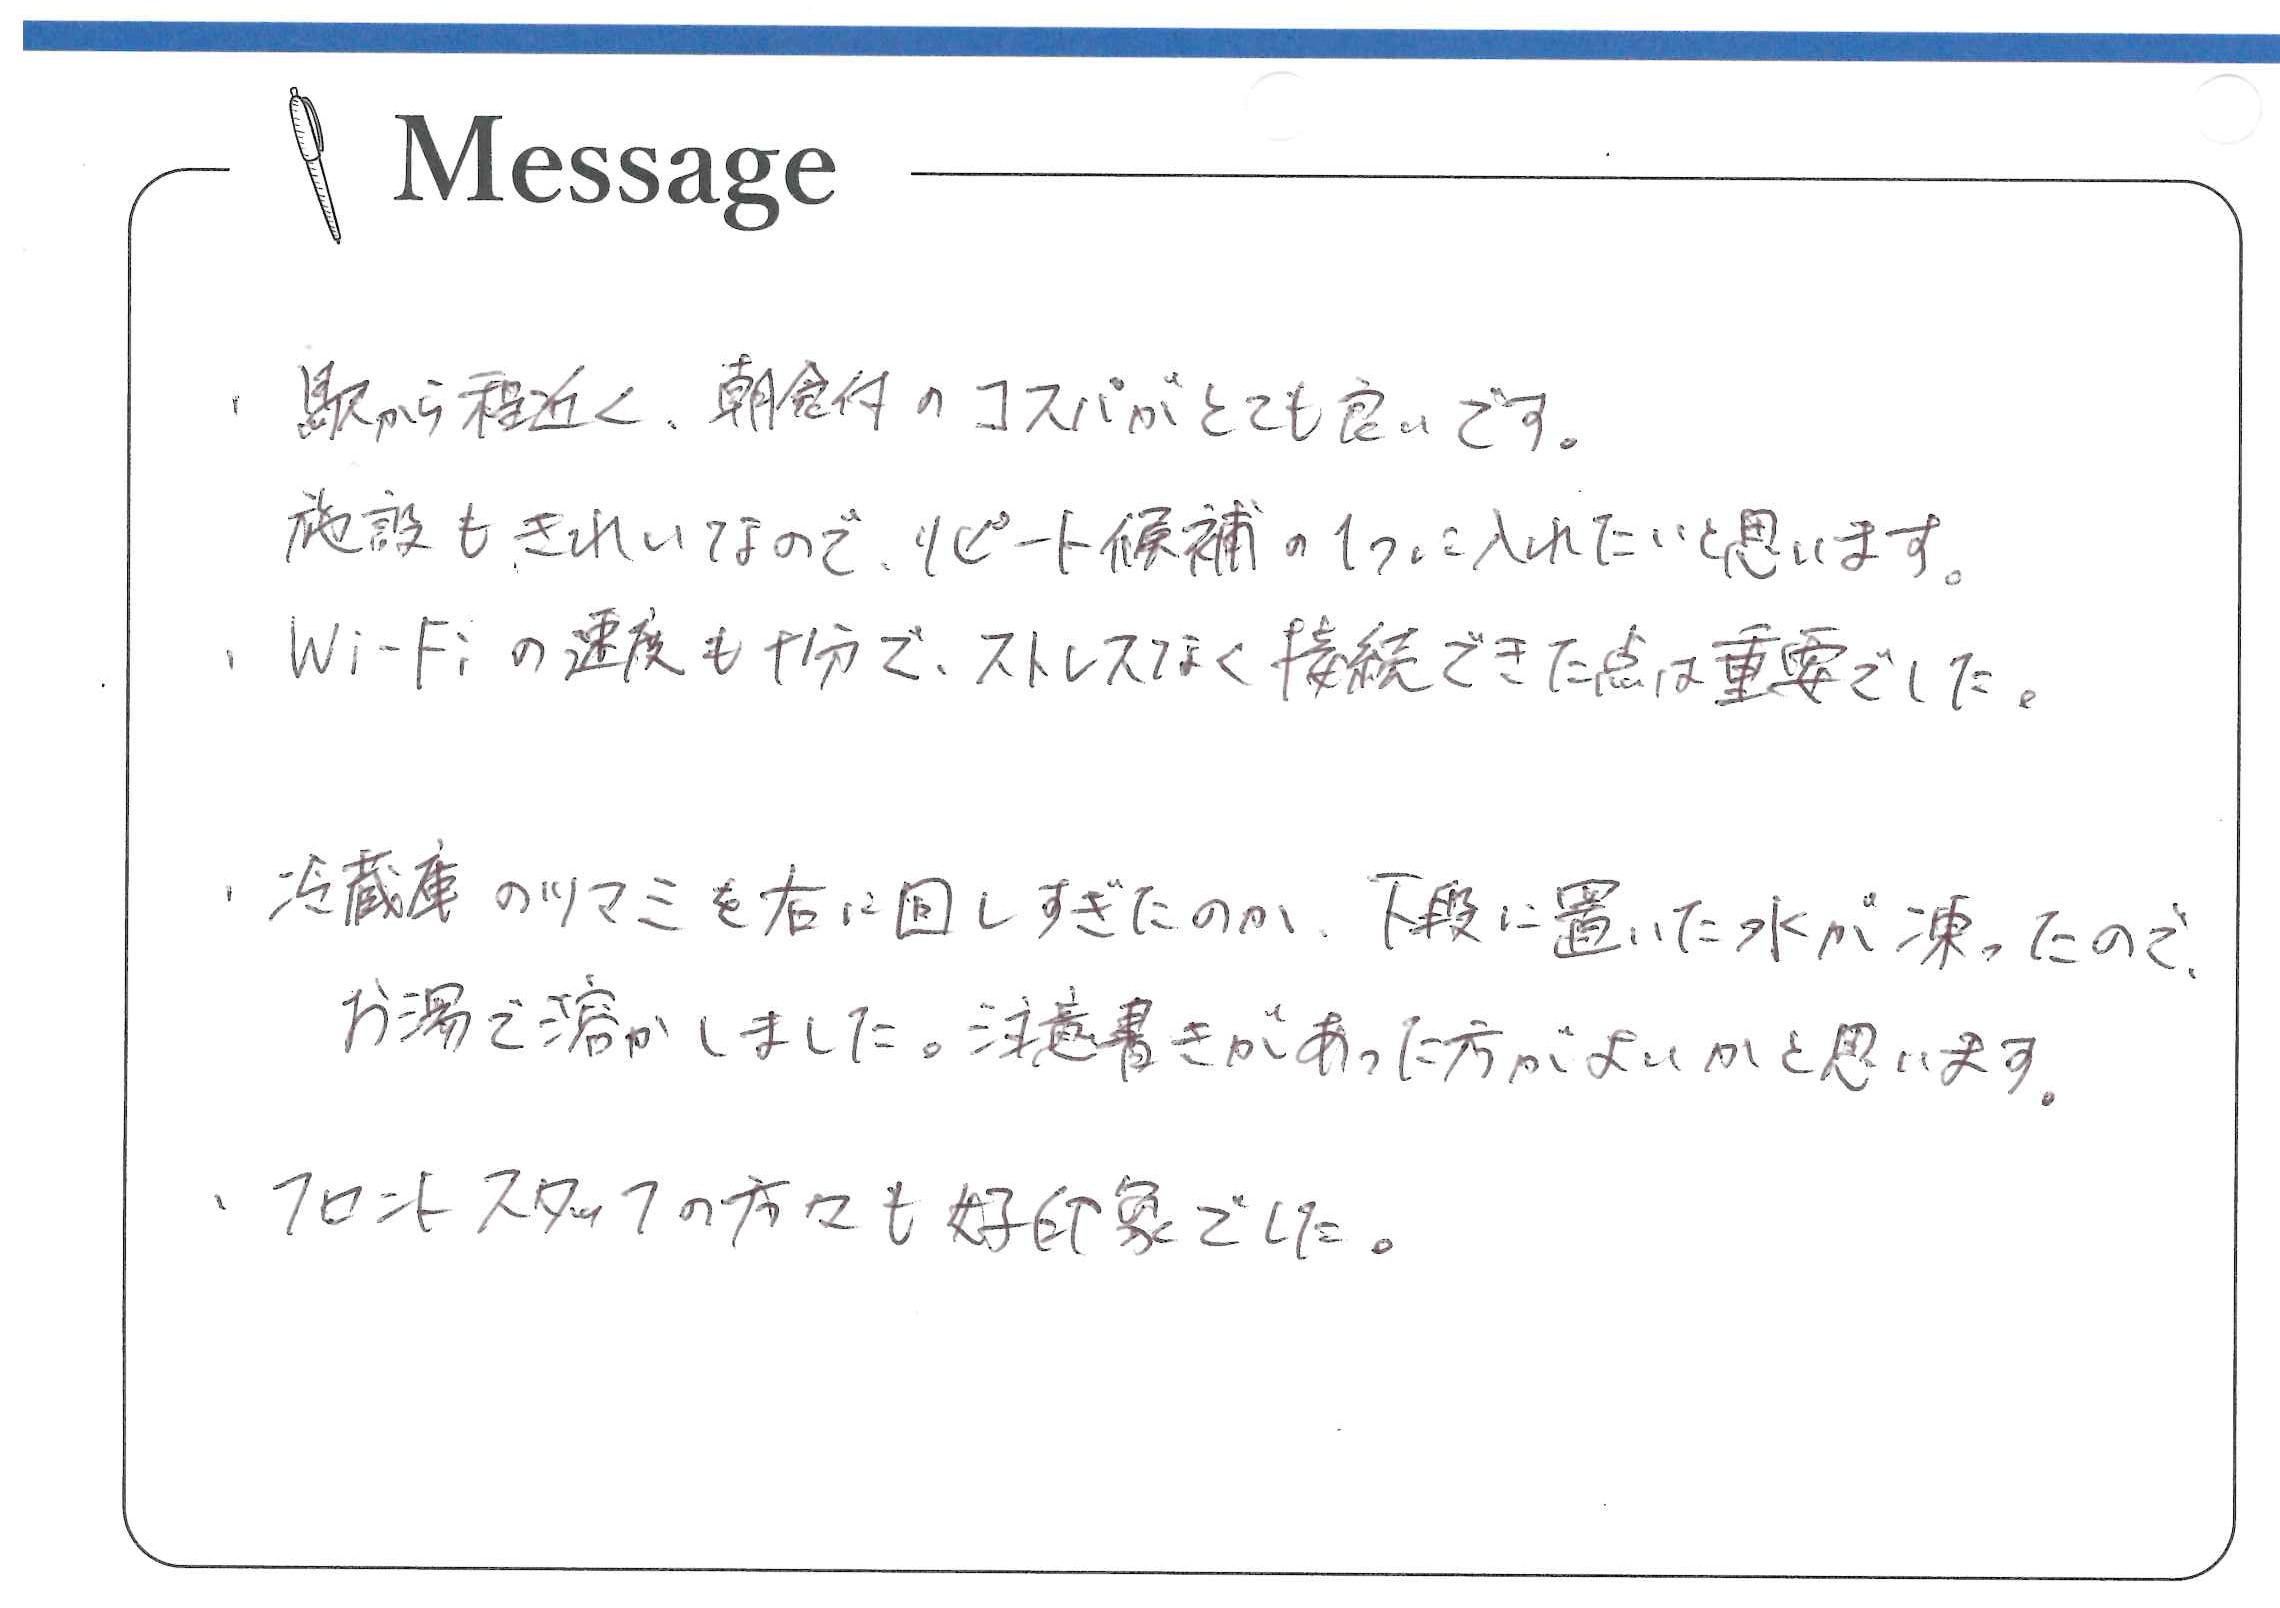 Message
・駅から程近く、朝食付のコスパがとても良いです。
施設もきれいなので、リピート候補の1つに入れたいと思います。
・Wi-Fiの速度も十分で、ストレスなく接続できた点は重要でした。
・冷蔵庫のツマミを右に回しすぎたのか、下段に置いた水が凍ったので、
お湯で溶かしました。注意書きがあった方がよいかと思います。
・フロントスタッフの方々も好印象でした。